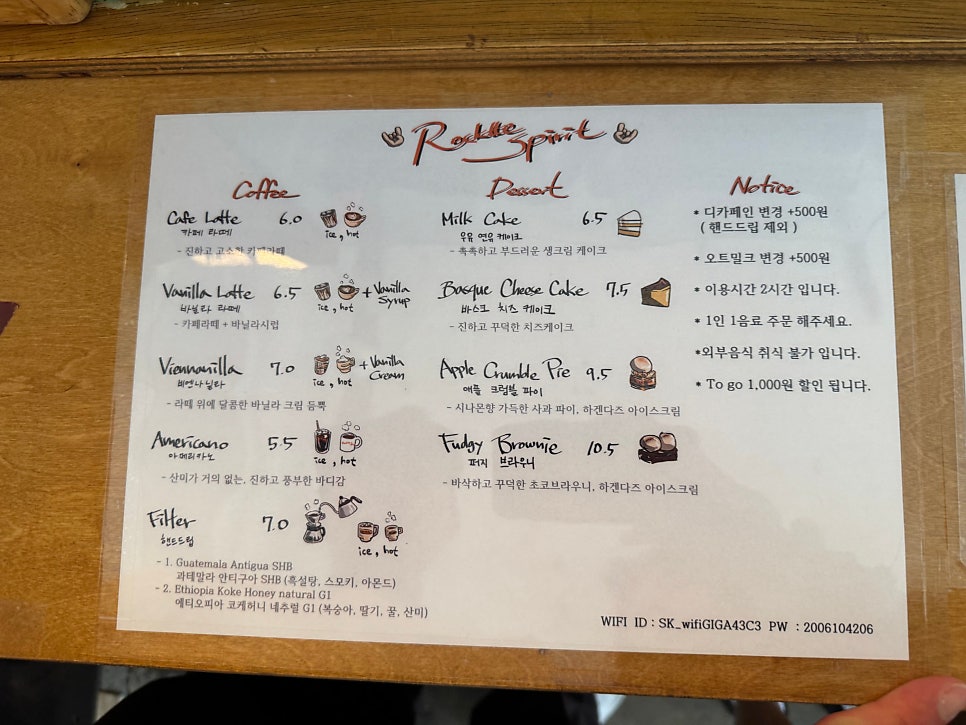 Rockttle Spirit
Coffee
Cafe Latte 6.0
카페 라떼
ice, hot
- 진하고 고소한 카페라떼
Vanilla Latte 6.5
바닐라 라떼
ice, hot
+ Vanilla Syrup
- 카페라떼 + 바닐라시럽
Viennanilla 7.0
비엔나닐라
ice, hot
+ Vanilla Cream
- 라떼 위에 달콤한 바닐라 크림 듬뿍
Americano 5.5
아메리카노
ice, hot
- 산미가 거의 없는, 진하고 풍부한 바디감
Filter 7.0
핸드드립
ice, hot
- 1. Guatemala Antigua SHB
과테말라 안티구아 SHB (흑설탕, 스모키, 아몬드)
- 2. Ethiopia Koke Honey natural G1
에티오피아 코케허니 네추럴 G1 (복숭아, 딸기, 꿀, 산미)
Dessert
Milk Cake 6.5
우유 연유 케이크
- 촉촉하고 부드러운 생크림 케이크
Basque Cheese Cake 7.5
바스크 치즈 케이크
- 진하고 꾸덕한 치즈케이크
Apple Crumble Pie 9.5
애플 크럼블 파이
- 시나몬향 가득한 사과 파이, 하겐다즈 아이스크림
Fudgy Brownie 10.5
퍼지 브라우니
- 바삭하고 꾸덕한 초코브라우니, 하겐다즈 아이스크림
Notice
* 디카페인 변경 +500원
( 핸드드립 제외 )
* 오트밀크 변경 +500원
* 이용시간 2시간 입니다.
* 1인 1음료 주문 해주세요.
*외부음식 취식 불가 입니다.
* To go 1,000원 할인 됩니다.
WIFI ID : SK_wifiGIGA43C3 PW : 2006104206